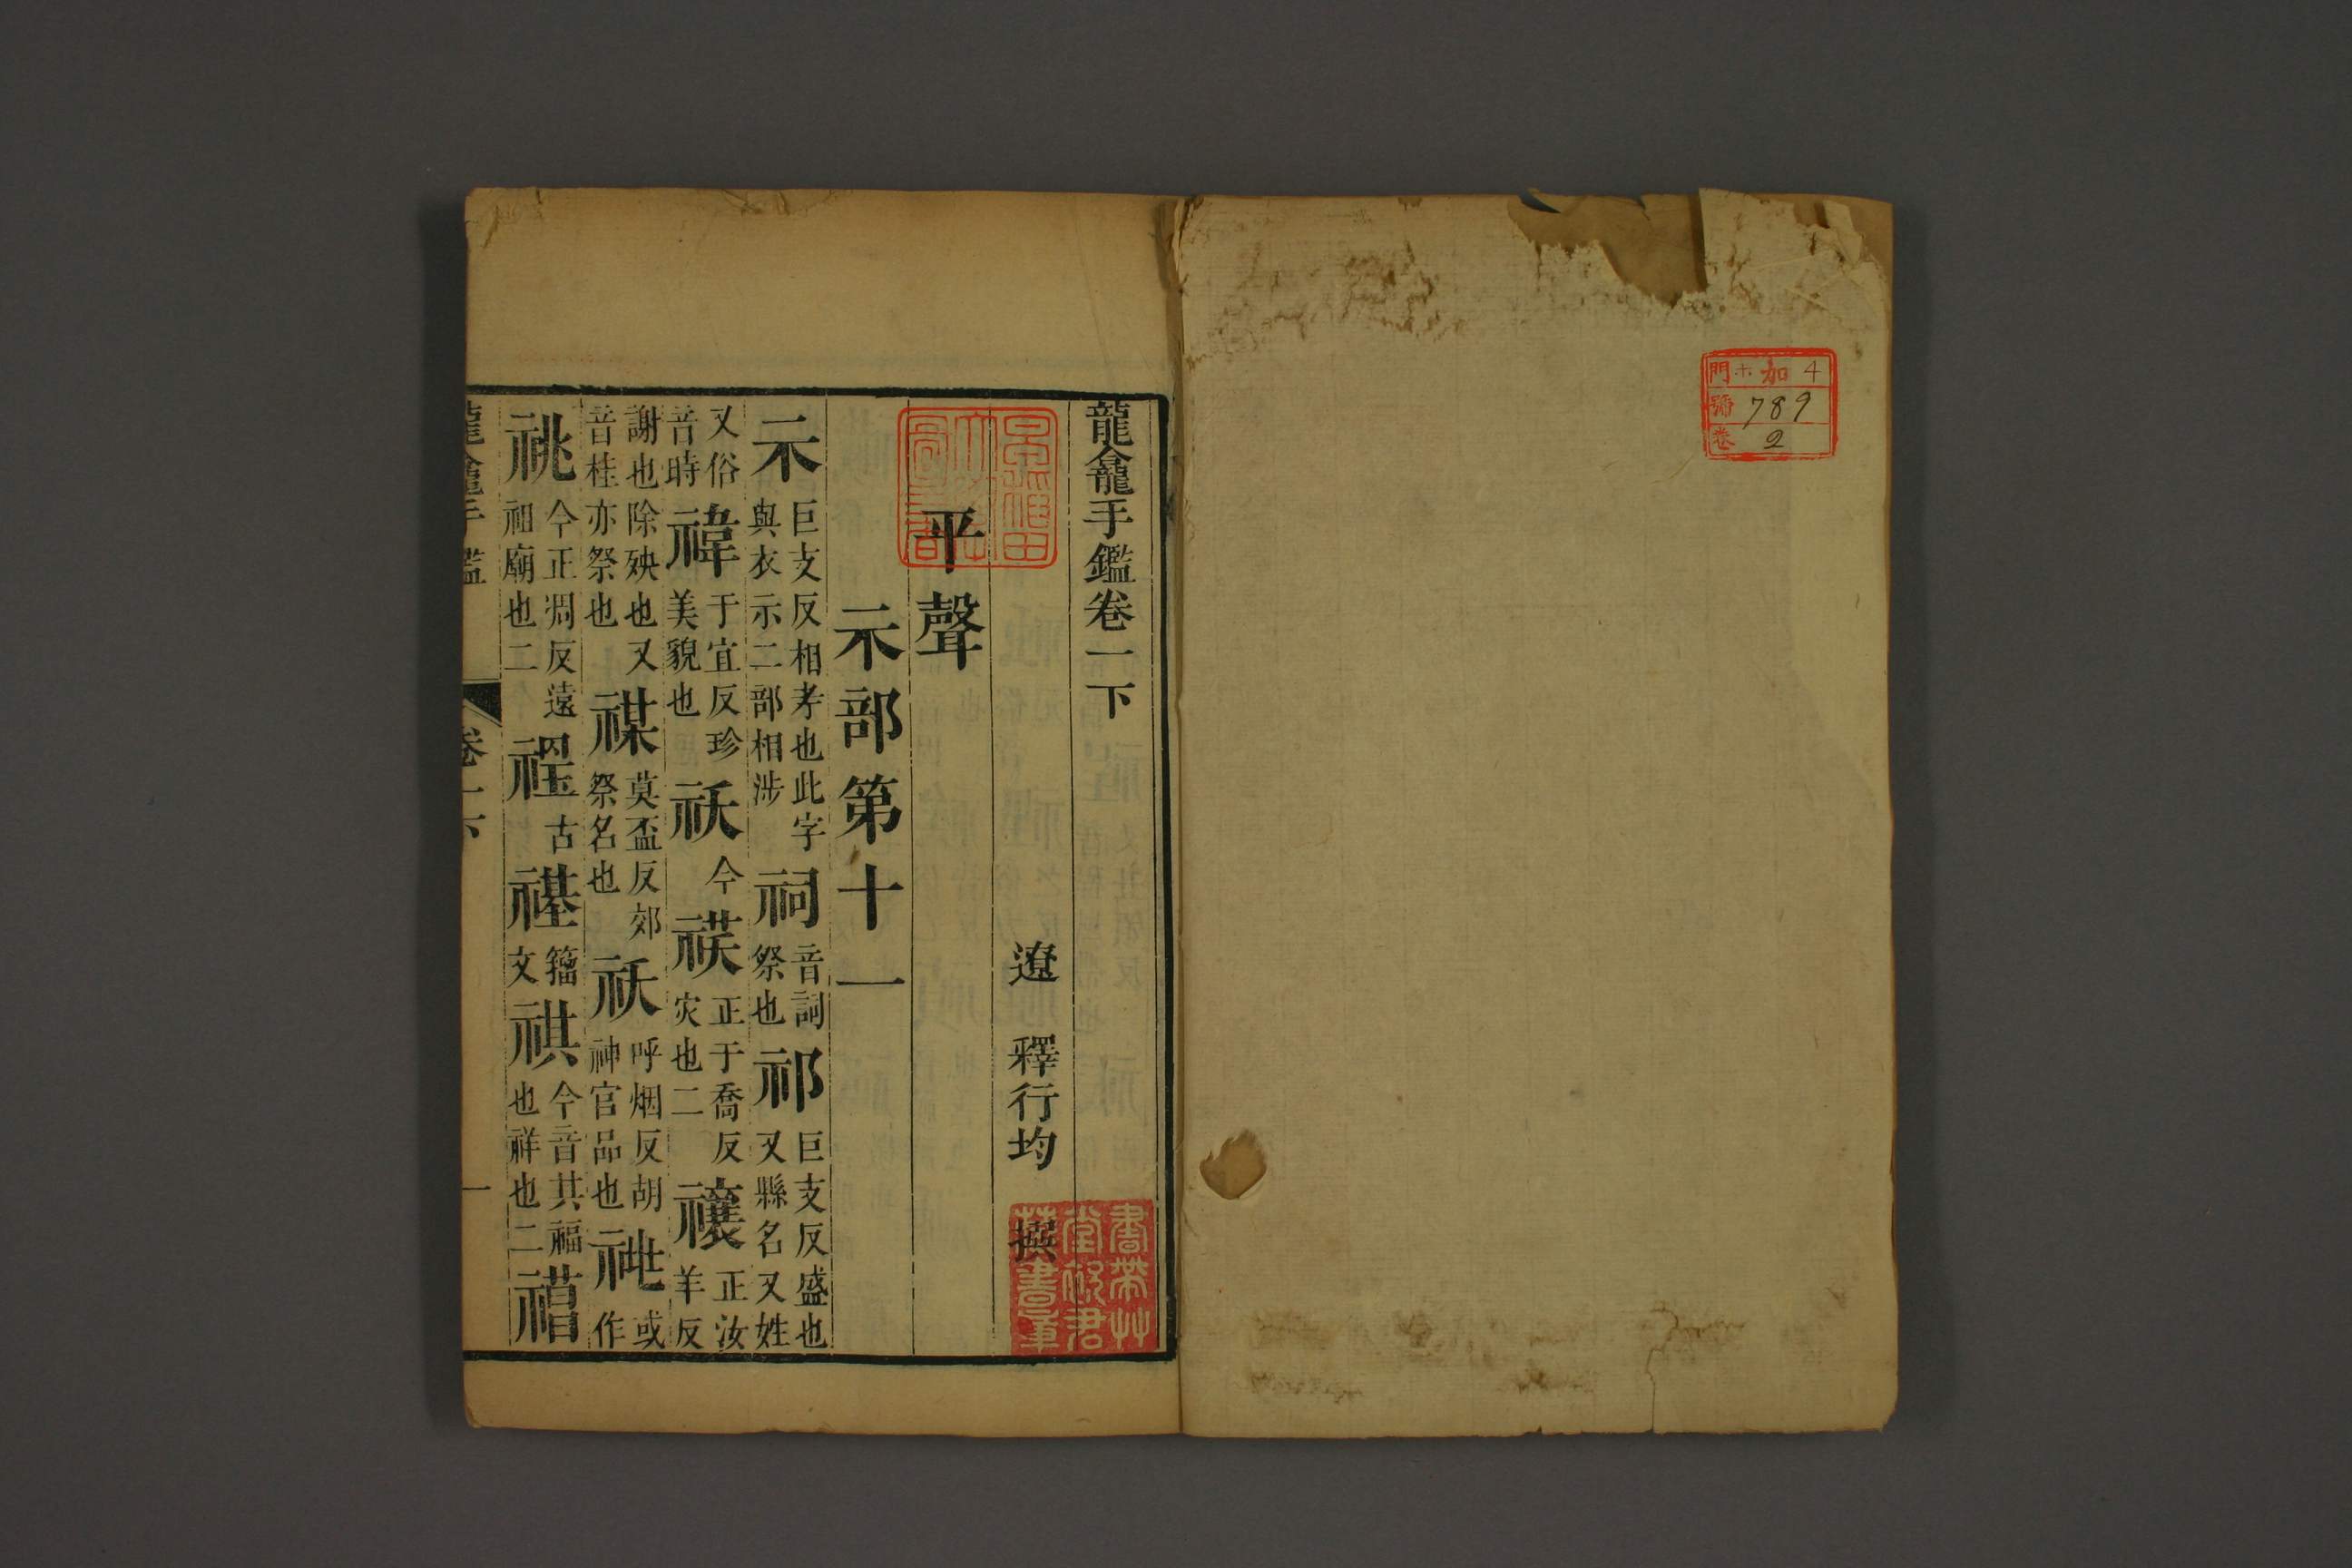 門 ホ 加 4
號 789
卷 2
龍龕手鑑卷一下
遼 釋行均 撰
平聲
礻部第十一
礻巨支反相孝也此字與衣示二部相涉祠音詞祭也祁巨支反盛也又縣名又姓
又俗音時禕于宜反珍美貌也祅今正于喬反灾也二禳正汝羊反
謝也除殃也又音桂亦祭也禖莫盃反郊祭名也祆呼烟反胡神官品也或作
祧今正凋反遠祖廟也二古籀文祺今音其福也祥也二
龍龕手鑑 卷一下 一